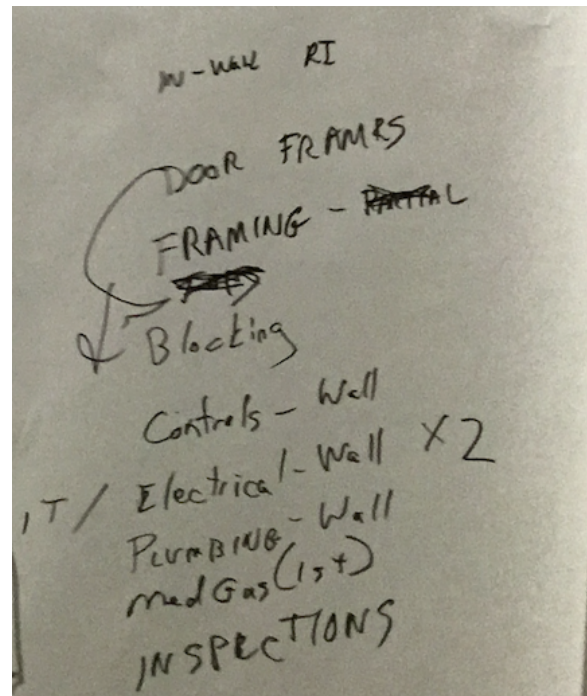 IN-Wall RI
DOOR FRAMES
FRAMING -
Blocking
Controls - Wall
IT / Electrical - Wall X2
PLUMBING - Wall
med Gas (1st)
INSPECTIONS